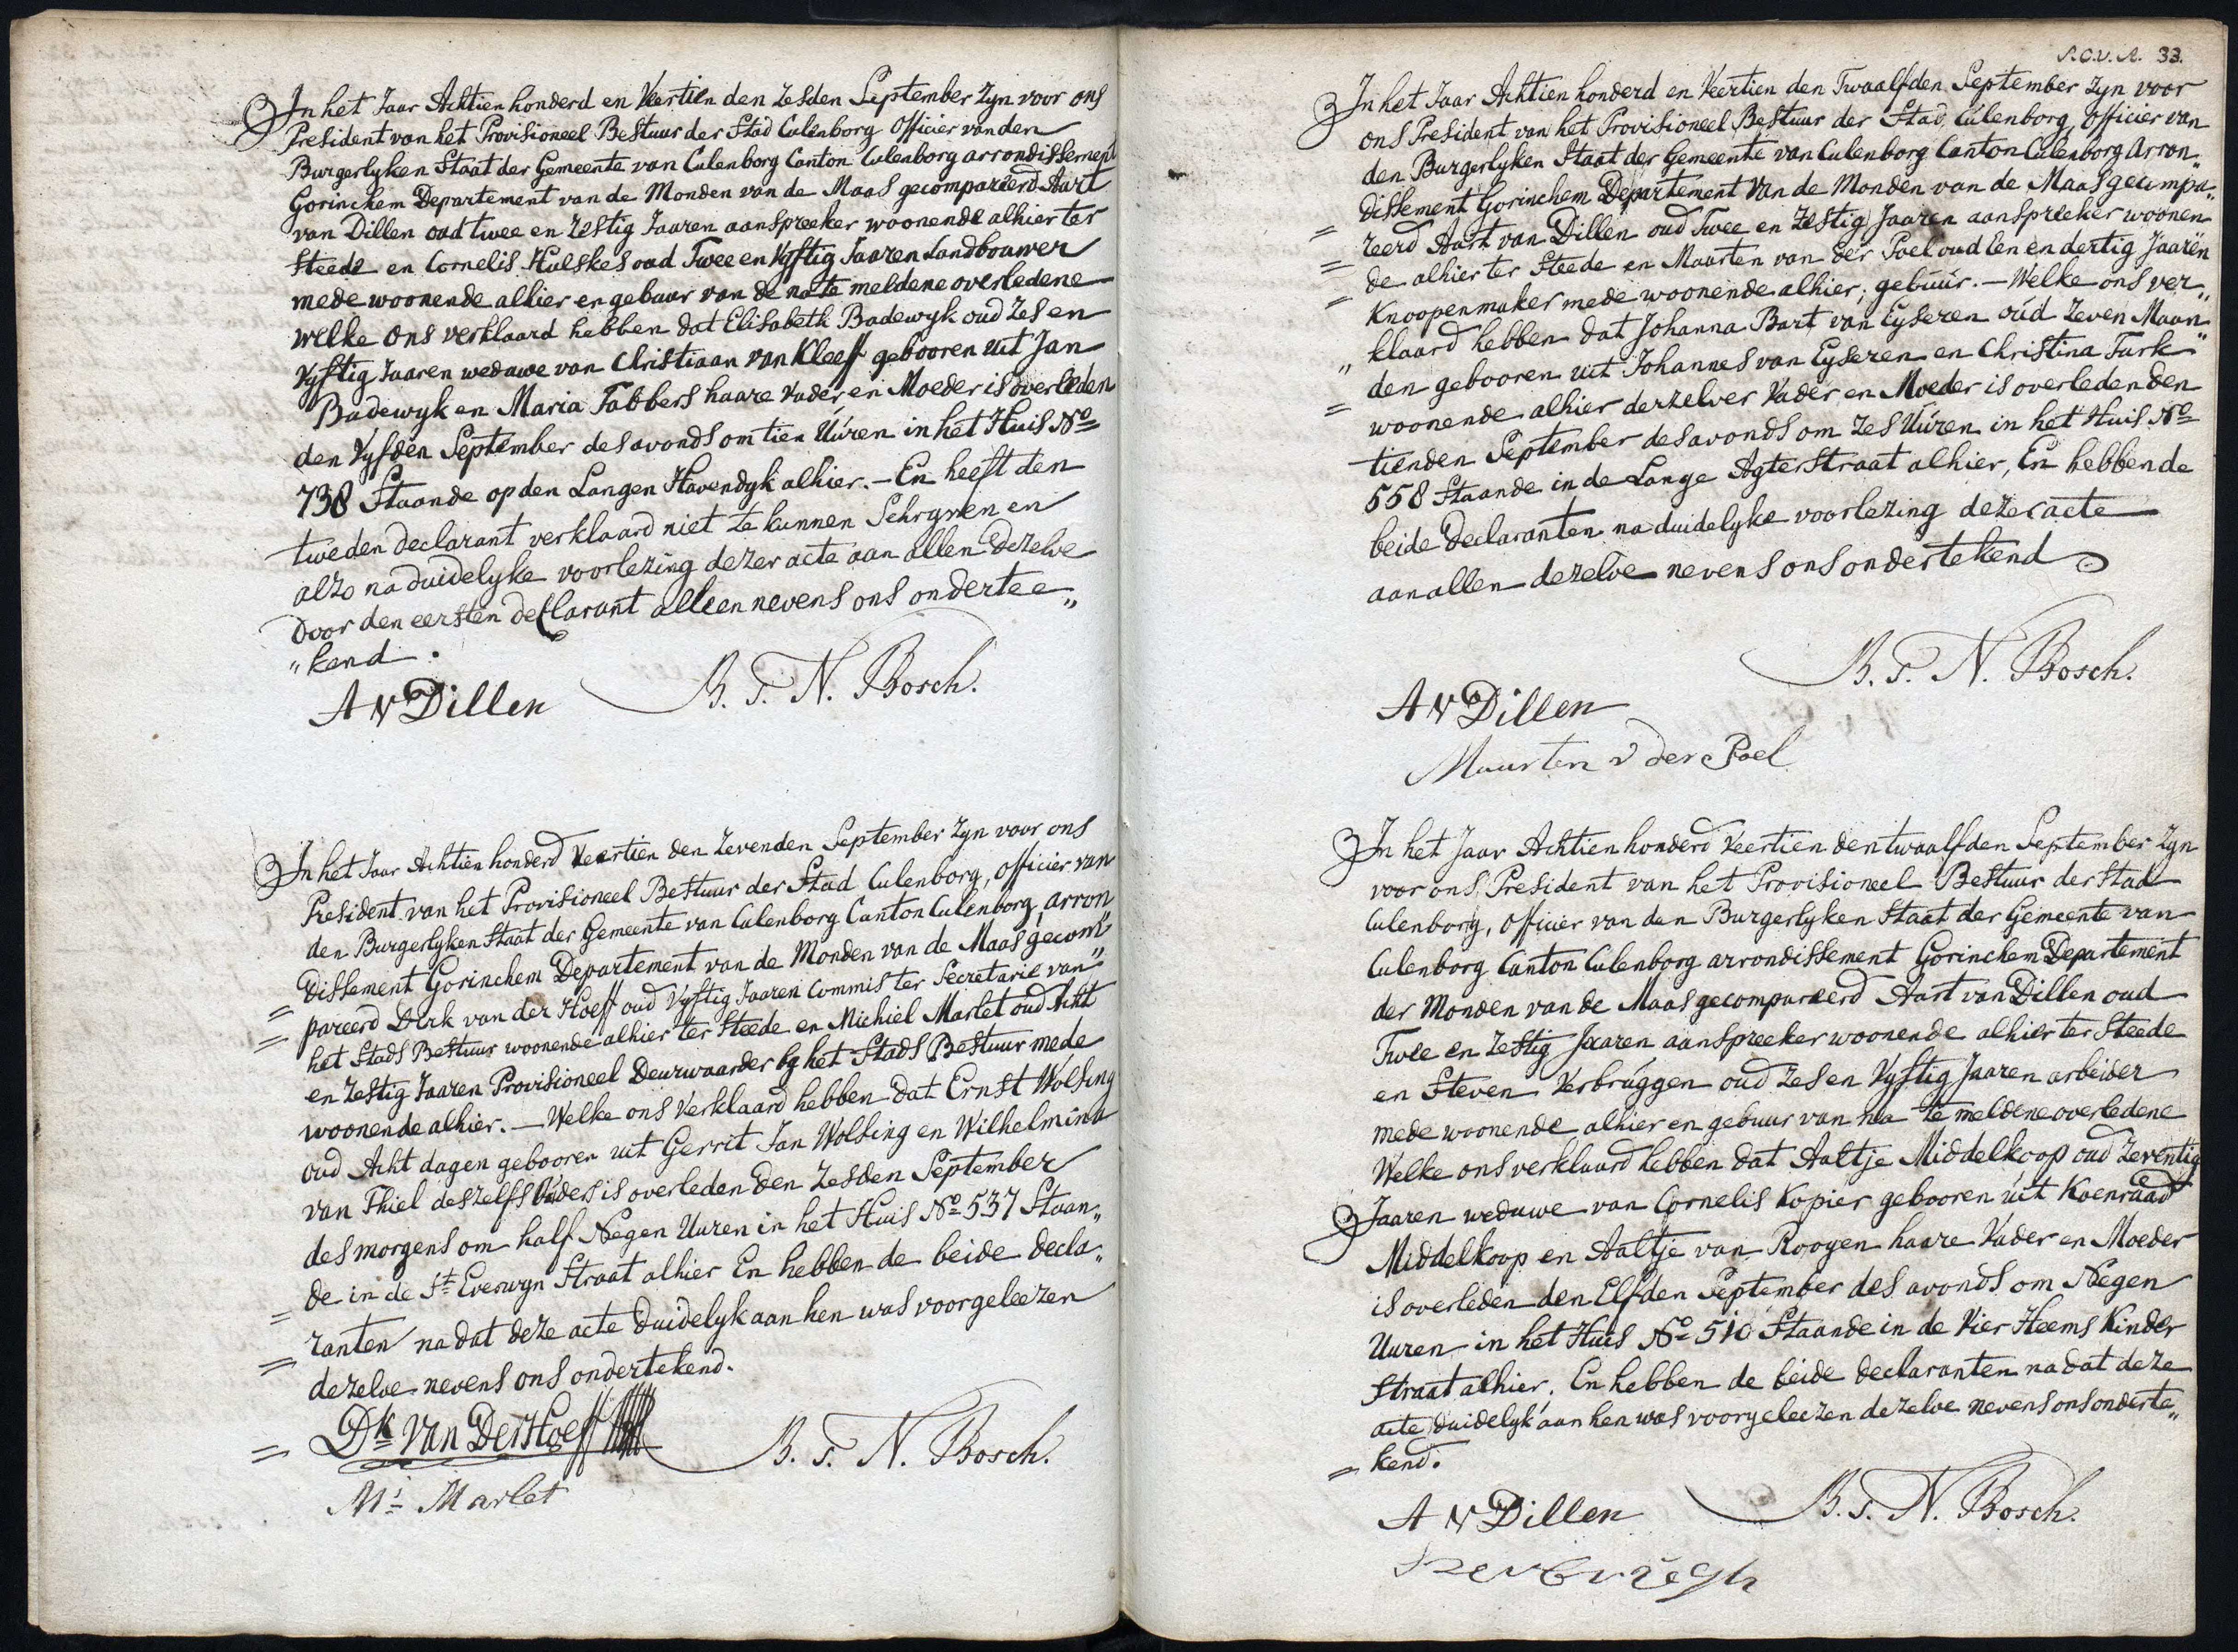 In het Jaar Achtien honderd en Veertien den Zesden September zyn voor ons
President van het Provisioneel Bestuur der Stad Culenborg Officier van den
Burgerlyken Staat der Gemeente van Culenborg Canton Culenborg arrondissement
Gorinchem Departement van de Monden van de Maas gecompareerd Aart
van Dillen oud twee en Zestig Jaaren aanspreeker woonende alhier ter
Steede en Cornelis Hueskes oud Twee en Vyftig Jaaren Landbouwer
mede woonende alhier en gebuur van de na te meldene overledene
welke ons verklaard hebben dat Elisabeth Badewyk oud Zes en
Vyftig Jaaren weduwe van Christiaan van Kleeff gebooren uit Jan
Badewyk en Maria Fabbers haare Vader en Moeder is overleden
den Vyfden September des avonds om tien Uúren in het Huis No
738 Staande op den Langen Havendyk alhier. — En heeft den
tweden declarant verklaard niet te kunnen Schryven en
alzo na duidelyke voorlezing dezer acte aan allen dezelve
door den eersten declarant alleen nevens ons ondertee„
„kend.
A v Dillen B. T. N. Bosch.
In het Jaar Achtien honderd Veertien den Zevenden September Zyn voor ons
President van het Provisioneel Bestuur der Stad Culenborg, Officier van
den Burgerlyken Staat der Gemeente van Culenborg Canton Culenborg, arron„
dissement Gorinchem Departement van de Monden van de Maas gecom„
= pareerd Dirk van der Hoeff oud Vyftig Jaaren Commis ter Secretarie van
= het Stads Bestuur woonende alhier ter Steede en Michiel Marlet oud Acht
en Zestig Jaaren Provisioneel Deurwaarder by het Stads Bestuur mede
woonende alhier. — Welke ons Verklaard hebben dat Ernst Wolsing
oud Acht dagen gebooren uit Gerrit Jan Wolsing en Wilhelmina
van Thiel deszelfs Ouders is overleden den Zesden September
des morgens om half Negen Uuren in het Huis No 537 Staan„
de in de St Everwyn Straat alhier En hebben de beide decla„
= ranten na dat deze acte duidelyk aan hen was voorgeleezen
= dezelve nevens ons ondertekend.
= Dk van Der Hoeff B. T. N. Bosch.
Ml Marlet
33.
In het Jaar Achtien honderd en Veertien den Twaalfden September zyn voor
ons President van het Provisioneel Bestuur der Stad Cúlenborg, Officier van
den Burgerlyken Staat der Gemeente van Culenborg Canton Culenborg Arron„
dissement Gorinchem Departement Van de Monden van de Maas gecompa„
= reerd Aart van Dillen oud Twee en Zestig Jaaren aanspreeker woonen
= de alhier ter Steede en Maarten van der Poel oud Een en dertig Jaaren
= Knoopenmaker mede woonende alhier; gebúúr. — Welke ons ver„
„ klaard hebben dat Johanna Bart van Eyseren oúd Zeven Maan„
= den gebooren uit Johannes van Eyseren en Christina Turk
woonende alhier derzelver Vader en Moeder is overleden den
tienden September des avonds om Zes Uúren in het Huis No
558 Staande in de Lange Agterstraat alhier, En hebben de
beide Declaranten na duidelyke voorlezing dezer acte
aan allen dezelve nevens ons ondertekend
B. T. N. Bosch.
A v Dillen
Maarten v der Poel
In het Jaar Achtien honderd Veertien den twaalfden September Zyn
voor ons President van het Provisioneel Bestuur der Stad
Culenborg, Officier van den Burgerlyken Staat der Gemeente van
Culenborg Canton Culenborg arrondissement Gorinchem Departement
der Monden van de Maas gecompareerd Aart van Dillen oud
Twee en Zestig Jaaren aanspreeker woonende alhier ter Steede
en Steven Verbrúggen oud Zes en Vyftig Jaaren arbeider
mede woonende alhier en gebuur van na te meldene overledene
Welke ons verklaard hebben dat Aaltje Middelkoop oud Zeventig
Jaaren weduwe van Cornelis Kopier gebooren uit Koenraad
Middelkoop en Aaltje van Rooyen haare Vader en Moeder
is overleden den Elfden September des avonds om Negen
Uuren in het Huis No 510 Staande in de Vier Heems Kinder
Straat alhier. En hebben de beide declaranten na dat deze
acte duidelyk aan hen was voorgeleezen dezelve nevens ons onderte„
= kend.
A v Dillen B. T. N. Bosch.